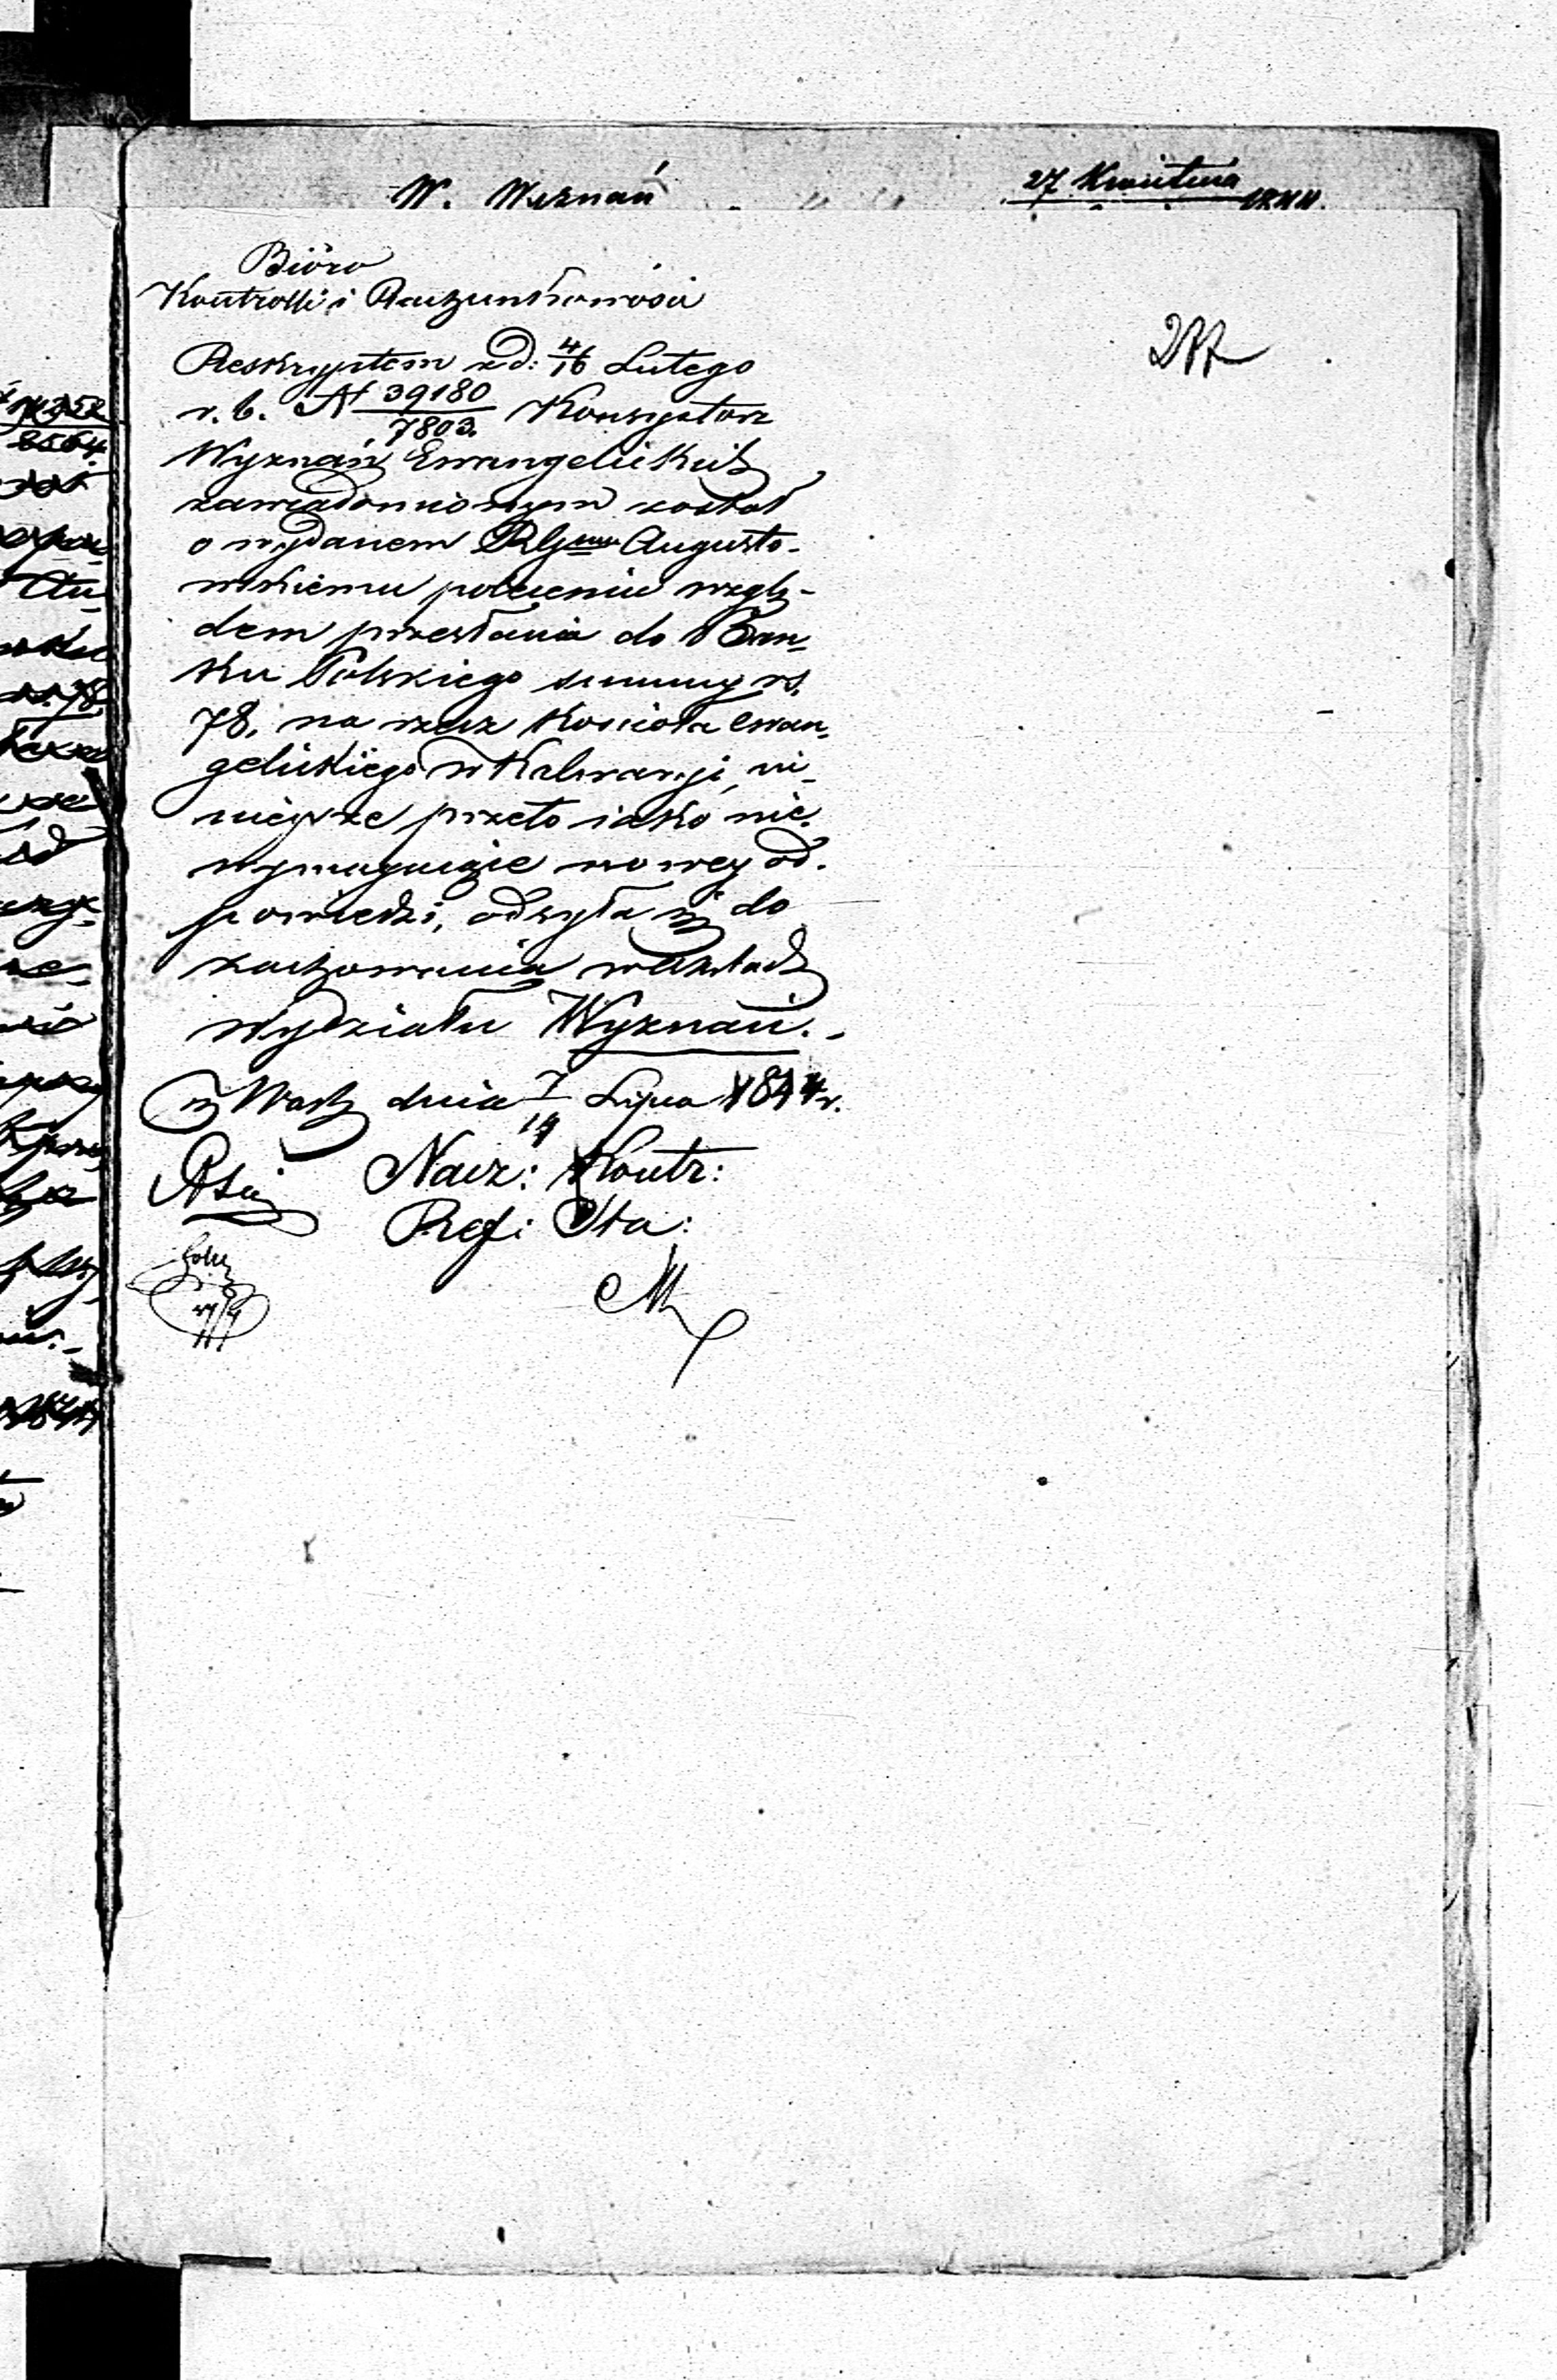 W. Wyznań
27 Kwietnia 1844.
277
Bióro
Kontrolli i Rachunkowości
Reskryptem z d: 4/16 Lutego
r. b. N 39180/7803. Konsystorz
Wyznań Ewangelickich
zawiadomionym został
o wydanem Rządowi Augusto-
wskiemu poleceniu wzglę-
dem przesłania do Ban-
ku Polskiego summy rs.
78, na rzecz Kościoła ewan-
gelickiego w Kalwaryi, ni-
nieysze przeto iako nie
wymagaiące nowey od-
powiedzi, odsyła się do
zachowania w Aktach
wydziału Wyznań.
w Warsz dnia 7/19 Lipca 1844 r.
Nacz: Kontr:
Ref: Sta: